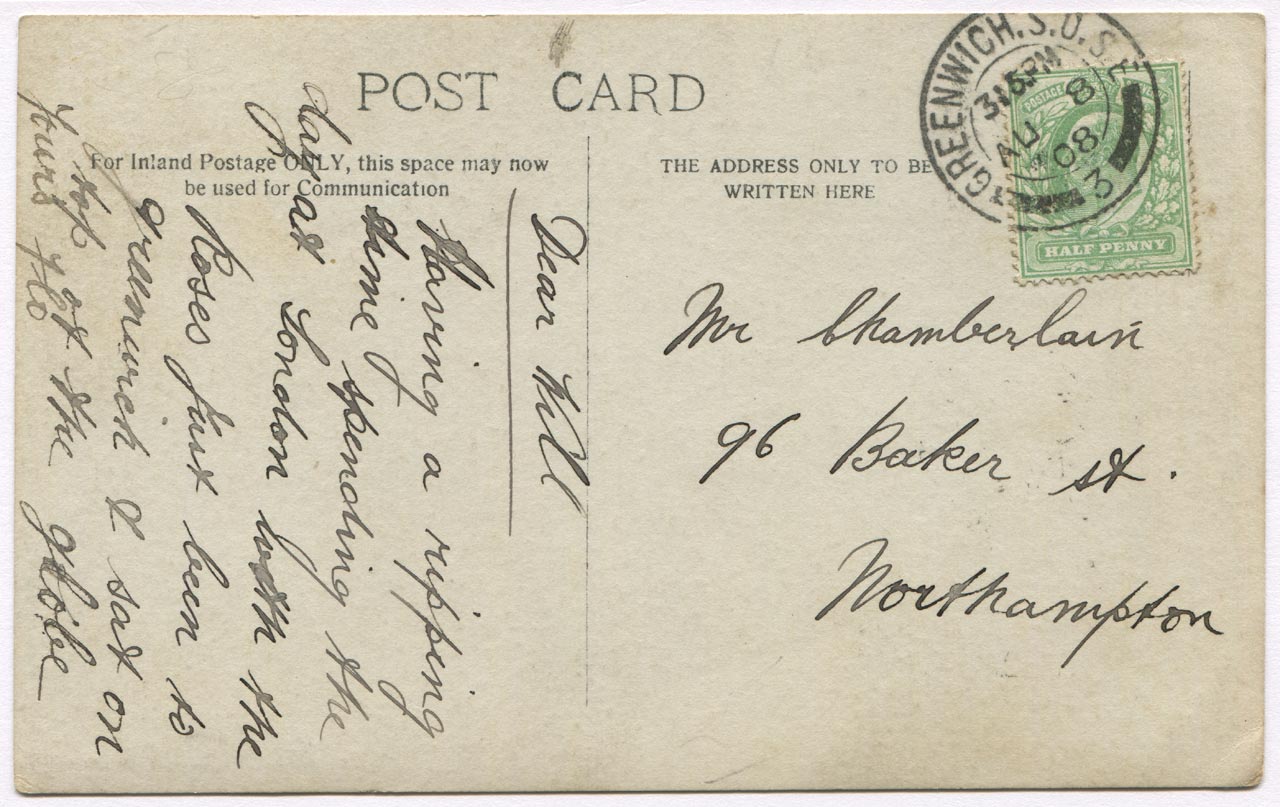 POST CARD
For Inland Postage ONLY, this space may now
be used for Communication
THE ADDRESS ONLY TO BE
WRITTEN HERE
GREENWICH.S.O.S.E
3 15PM
AU 8
08
3
POSTAGE
HALF PENNY
Mr Chamberlain
96 Baker St.
Northampton
Dear Will
Having a ripping
time spending the
day at London with the
Roses just been to
Greenwich & sat on
top of the globe
Yours Flo